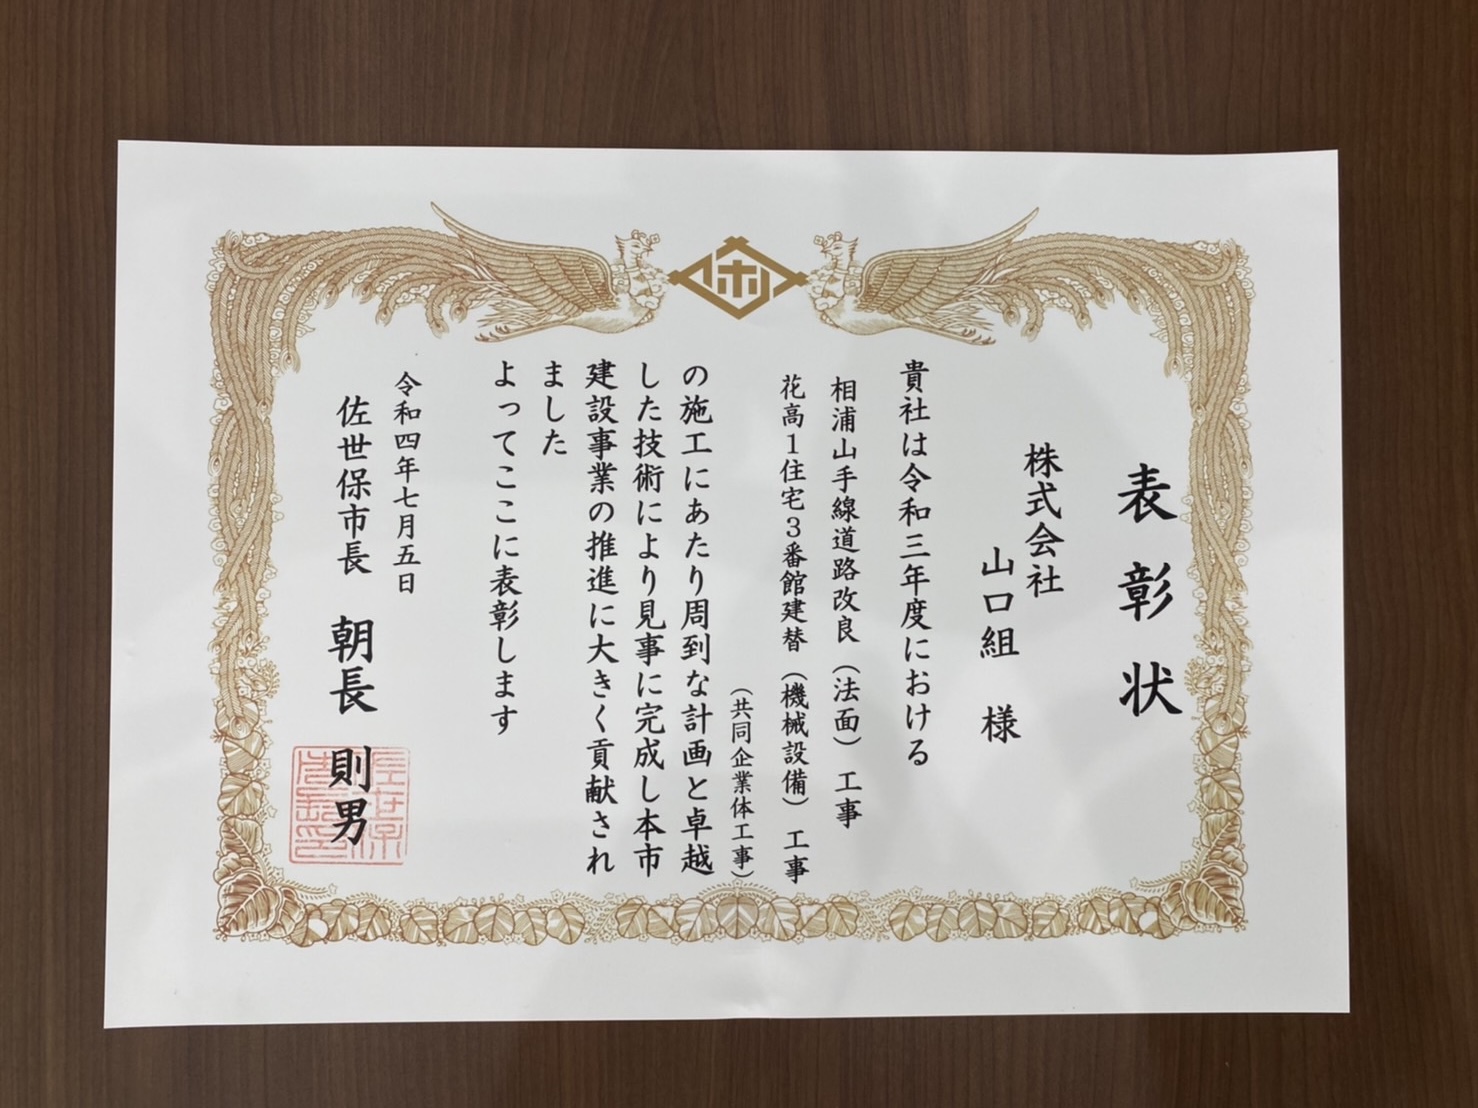 表彰状
株式会社
山口組 様
貴社は令和三年度における
相浦山手線道路改良（法面）工事
花高１住宅３番館建替（機械設備）工事
（共同企業体工事）
の施工にあたり周到な計画と卓越
した技術により見事に完成し本市
建設事業の推進に大きく貢献され
ました
よってここに表彰します
令和四年七月五日
佐世保市長 朝長 則男